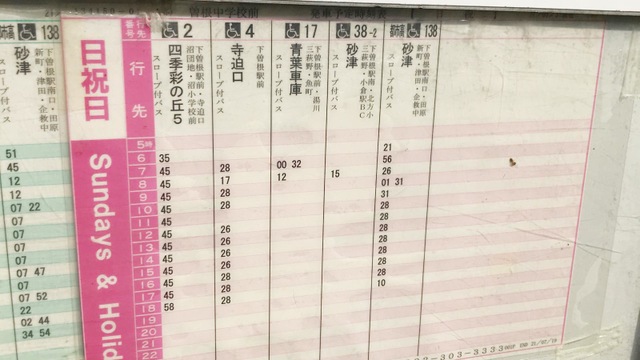 曽根中学校前
138
砂津
下曽根駅南口・田原
新町・津田・企救中
スロープ付バス
51
45
12
12
07 22
07
07
07
07
07 47
07
07 52
22
02 44
34 54
日祝日
Sundays & Holid
番号
行先
行先
5時
6
7
8
9
10
11
12
13
14
15
16
17
18
19
20
21
22
2
四季彩の丘5
下曽根駅前・寺迫口
沼団地・沼小学校前
スロープ付バス
35
45
45
45
45
45
45
45
45
45
45
45
58
4
寺迫口
下曽根駅前
スロープ付バス
28
17
28
28
26
26
28
26
28
28
17
青葉車庫
下曽根駅前・湯川
三萩野・魚町
スロープ付バス
00 32
12
38-2
砂津
下曽根駅前・北方
三萩野・小倉駅BC
スロープ付バス
15
138
砂津
下曽根駅南口・田原
新町・津田・企救中
スロープ付バス
21
56
26
01 31
31
28
28
28
28
28
28
10
303-3333